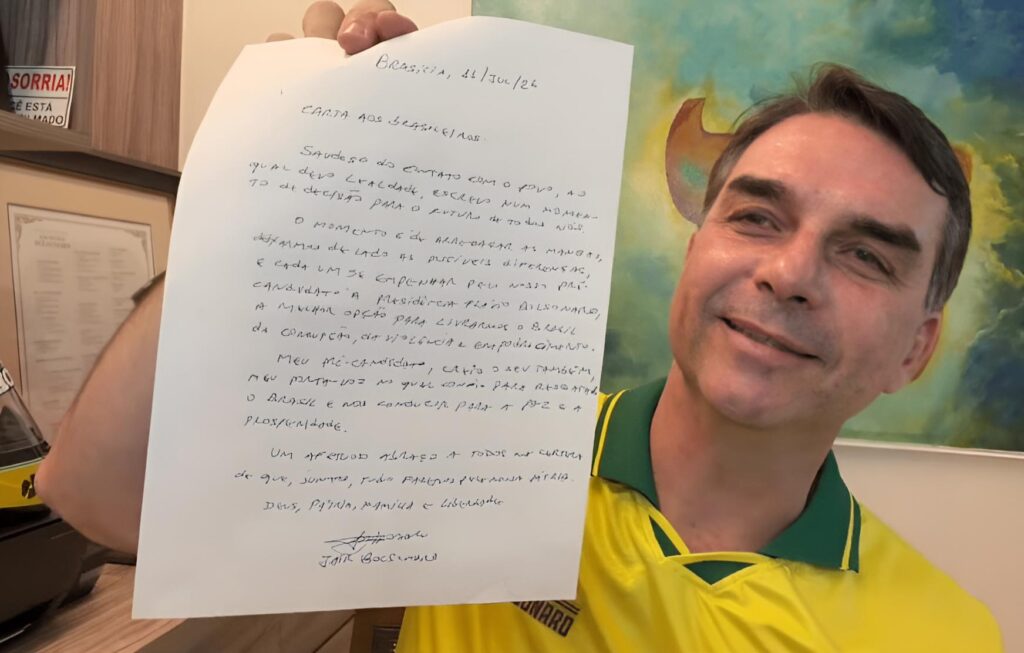 SORRIA!
CÊ ESTÁ
LMADO
BRASÍLIA, 11/JUL/26
CARTA AOS BRASILEIROS.
SAUDOSO DO CONTATO COM O POVO, AO
QUAL DEVO LEALDADE, ESCREVO NUM MOMEN-
TO DE DECISÃO PARA O FUTURO DE TODOS NÓS.
O MOMENTO É DE ARREGAÇAR AS MANGAS,
DEIXARMOS DE LADO AS POSSÍVEIS DIFERENÇAS,
E CADA UM SE EMPENHAR PELO NOSSO PRÉ-
CANDIDATO À PRESIDÊNCIA FLÁVIO BOLSONARO,
A MELHOR OPÇÃO PARA LIVRARMOS O BRASIL
DA CORRUPÇÃO, DA VIOLÊNCIA E EMPOBRECIMENTO.
MEU PRÉ-CANDIDATO, CREIO O SEU TAMBÉM,
MEU PORTA-VOZ NO QUAL CONFIO PARA RESGATAR
O BRASIL E NOS CONDUZIR PARA A PAZ E A
PROSPERIDADE.
UM APERTADO ABRAÇO A TODOS NA CERTEZA
DE QUE, JUNTOS, TUDO FAREMOS PELA NOSSA PÁTRIA.
DEUS, PÁTRIA, FAMÍLIA E LIBERDADE
JAIR BOLSONARO
ONARO